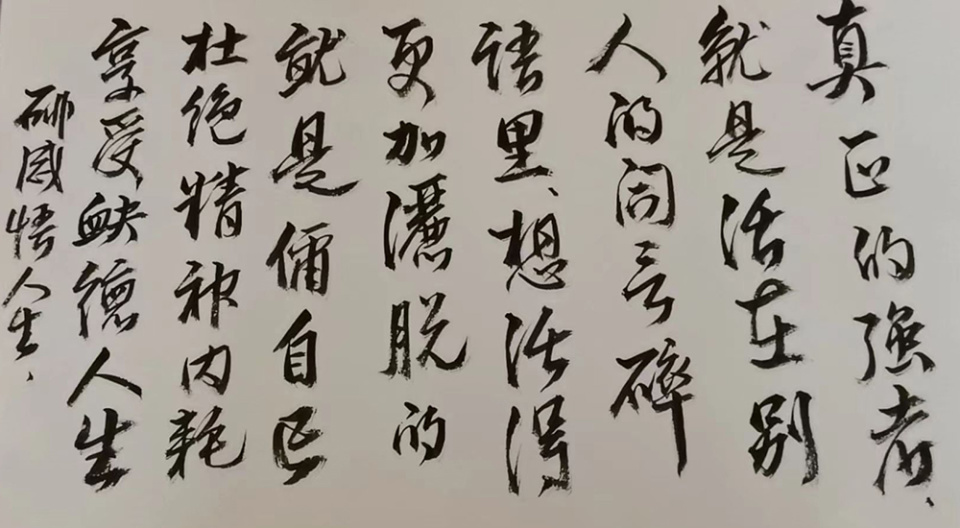 真正的强者、
就是活在别
人的闲言碎
语里、想活得
更加灑脱的
就是自己
杜绝精神内耗
享受缺德人生
感悟人生、